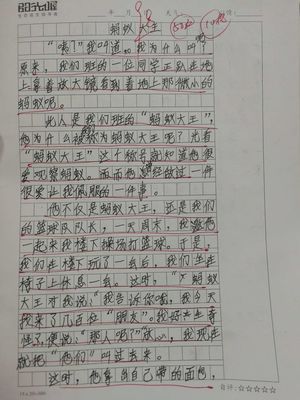 阳光喔
年 月
蚂蚁大王
"喂!"我叫道。我为什么叫呢?
原来,我们班的一位同学正趴在地
上拿着放大镜看到着地上那微小的
蚂蚁呢。
此人是我们班的"蚂蚁大王",
他为什么被称为蚂蚁大王呢?光看
"蚂蚁大王"这个称号就知道他很
爱观察蚂蚁。而而他曾经做过一件
很要让我佩服的一件事。
他不仅是蚂蚁大王,还是我们
的篮球队队长,一天周末,我邀他
一起来我楼下操场打篮球。于是,
我们在楼下玩了一会后,我们坐在
椅子上休息一会。这时,"蚂蚁
大王对我说:"我告诉你哦,我今天
找来了几百位"朋友"。我好奇
便说:"那人呢?"我现在
就把"他们"叫过去来。
这时,他拿出自己带的面包,
自评:☆☆☆☆☆